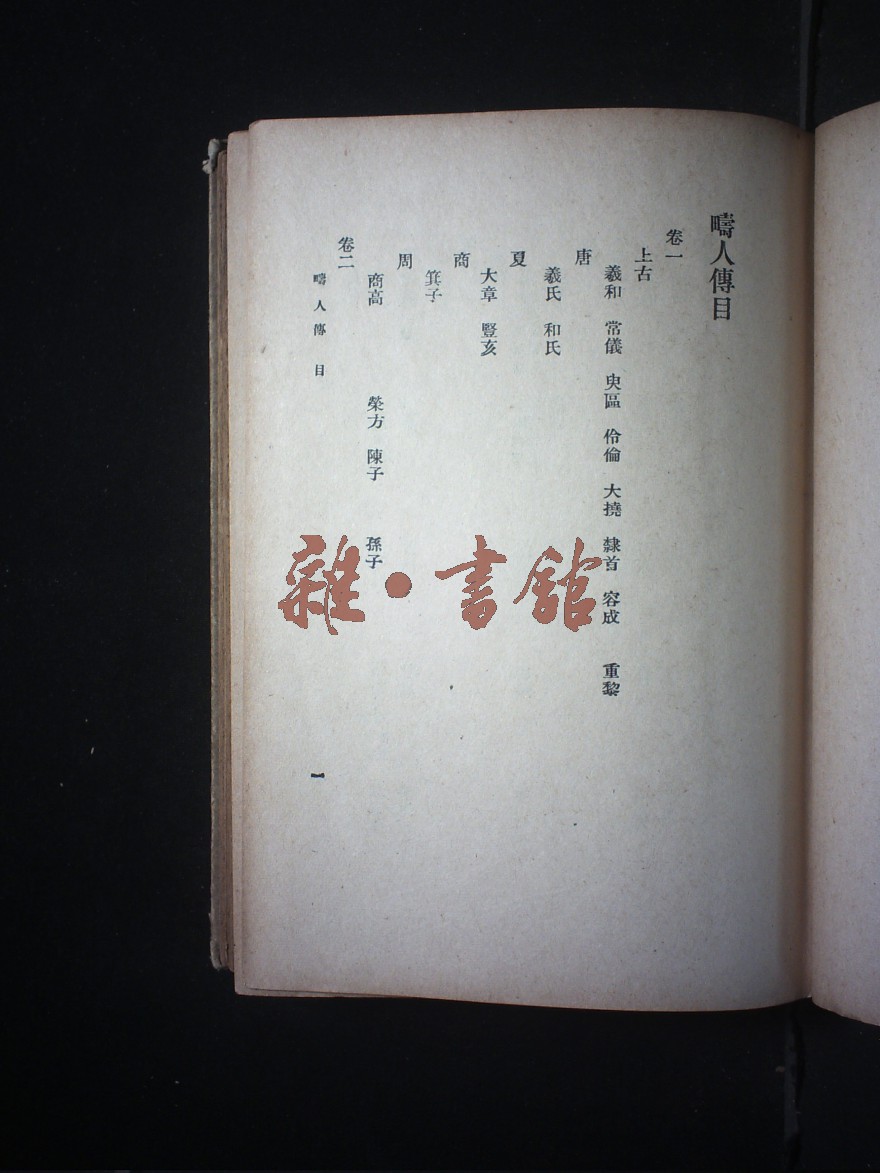 疇人傳目
卷一
上古
羲和 常儀 臾區 伶倫 大撓 隸首 容成 重黎
唐
羲氏 和氏
夏
大章 豎亥
商
箕子
周
商高 榮方 陳子 孫子
卷二
疇人傳目
一
雜·書館